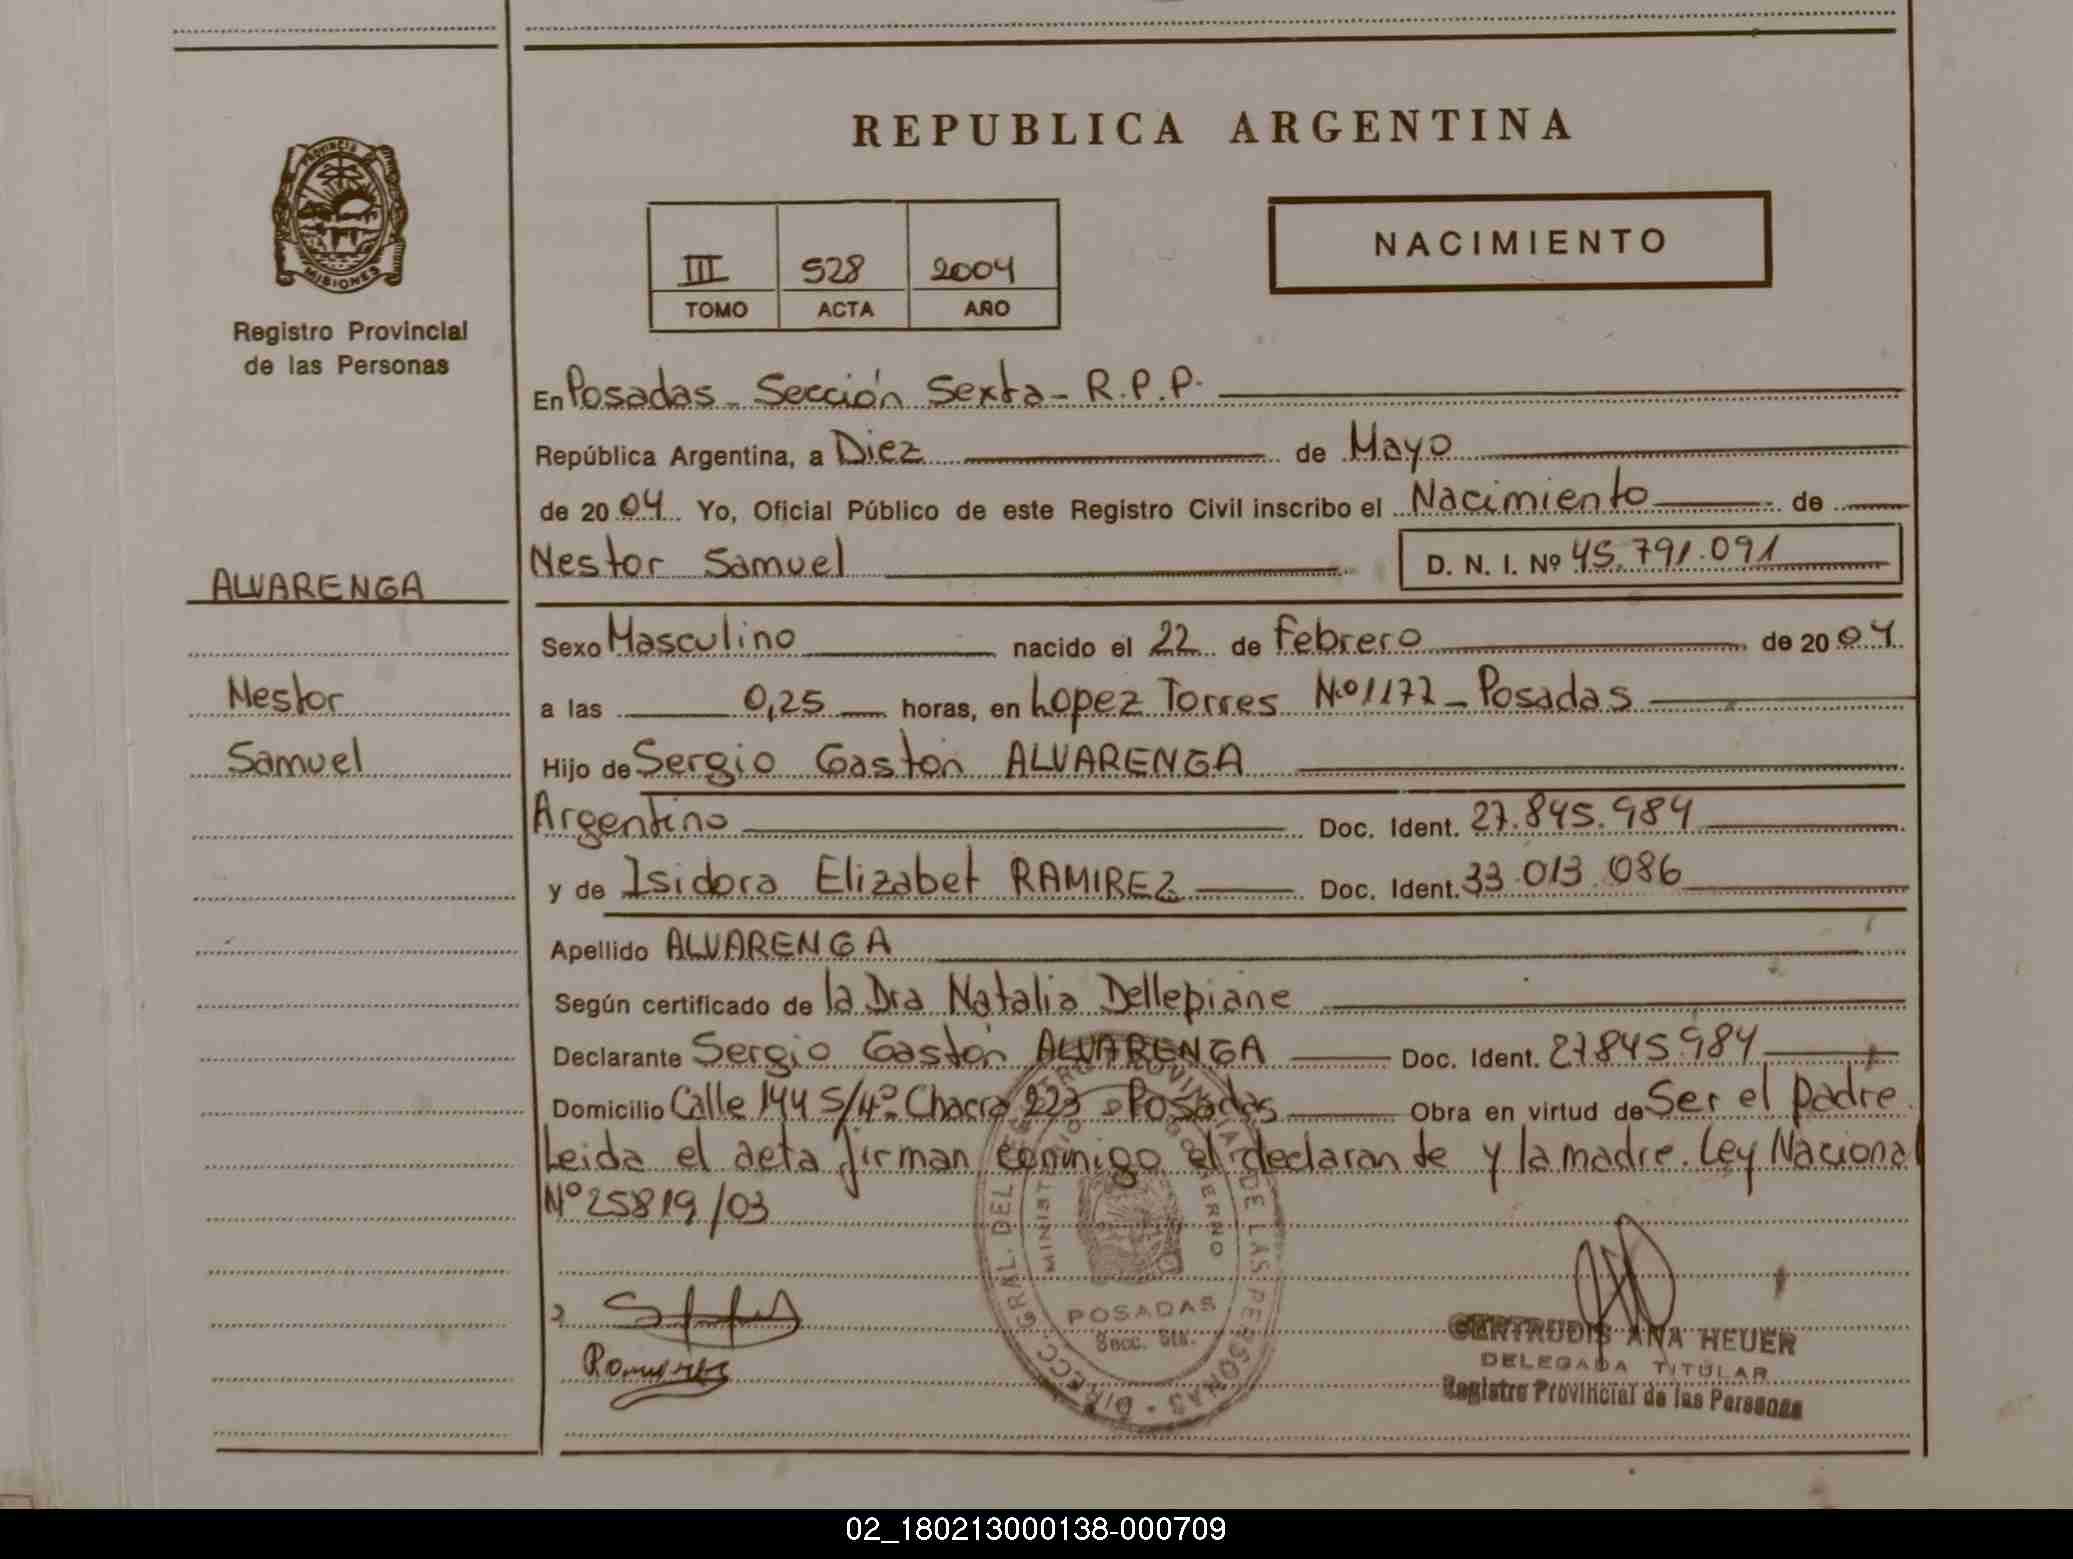 PROVINCIA
MISIONES
Registro Provincial
de las Personas
ALVARENGA
Nestor
Samuel
REPUBLICA ARGENTINA
III 528 2004
TOMO ACTA AÑO
NACIMIENTO
En Posadas - Sección Sexta - R.P.P.
República Argentina, a Diez de Mayo
de 2004 Yo, Oficial Público de este Registro Civil inscribo el Nacimiento de
Nestor Samuel D. N. I. Nº 45.791.091
Sexo Masculino nacido el 22 de Febrero de 2004
a las 0,25 horas, en Lopez Torres Nº 1177 - Posadas
Hijo de Sergio Gastón ALVARENGA
Argentino Doc. Ident. 27.845.984
y de Isidora Elizabet RAMIREZ Doc. Ident. 33.013.086
Apellido ALVARENGA
Según certificado de la Dra Natalia Dellepiane
Declarante Sergio Gastón ALVARENGA Doc. Ident. 27.845.984
Domicilio Calle 144 S/4º Chacra 223 - Posadas Obra en virtud de Ser el padre.
Leida el acta firman conmigo el declarante y la madre. Ley Nacional
Nº 25819/03
DIRECC. GRAL. DEL REGISTRO PROVINCIAL DE LAS PERSONAS
MINISTERIO DE GOBIERNO
POSADAS
Secc. 6ta.
Ramirez
GERTRUDIS ANA HEUER
DELEGADA TITULAR
Registro Provincial de las Personas
02_180213000138-000709